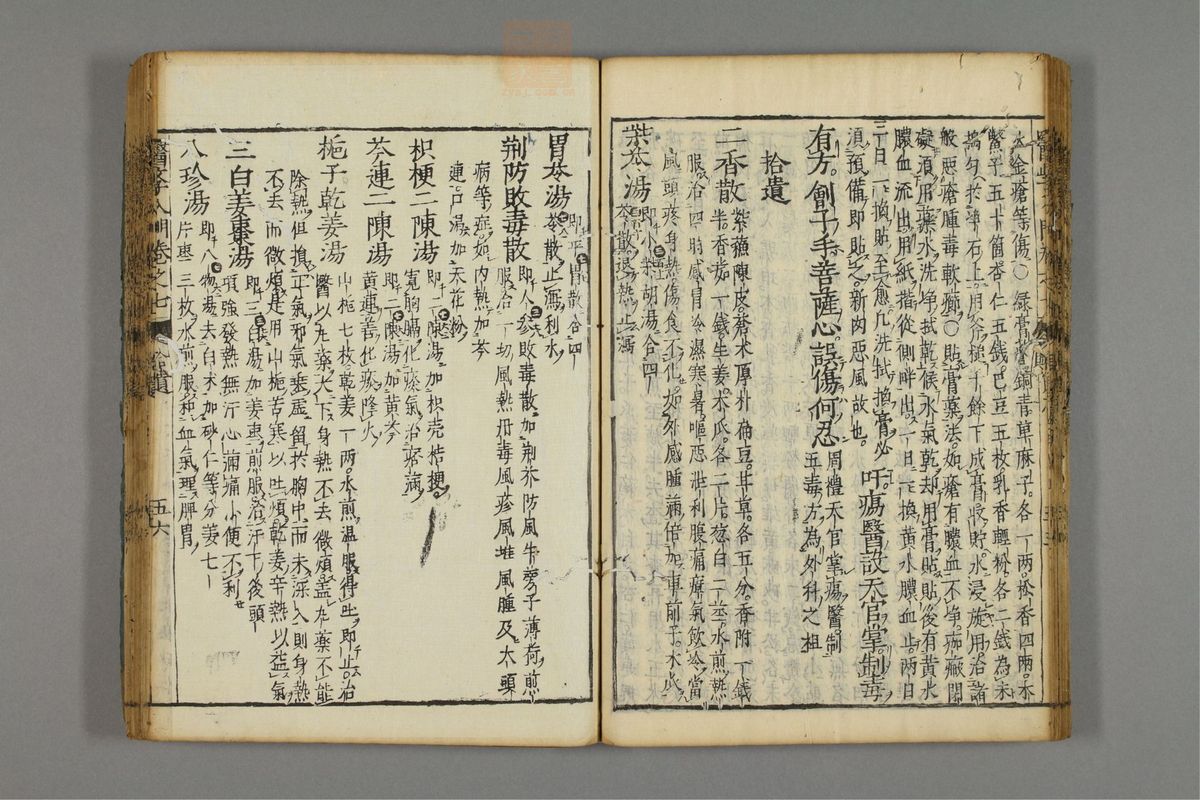 火金瘡等傷○綠膏藥銅青草麻子各一兩松香四兩木
鱉子五十箇杏仁五錢巴豆五枚乳香輕粉各二錢為末
搗勻於淨石上用斧槌千餘下成膏收貯水浸旋用治諸
般惡瘡腫毒軟癤○貼膏藥法如瘡有膿血不淨痂瘢閉
礙須用藥水洗淨拭乾候水氣乾却用膏貼貼後有黃水
膿血流出用紙揩從側畔出一日一換黃水膿血止兩日
三日一換貼至愈凡洗拭換膏必
須預備即貼之新肉惡風故也
吁瘍醫設天官掌制毒
有方劊子手善薩心誤傷何忍
周禮天官掌瘍醫制
五毒方為外科之祖
拾遺
二香散
紫蘇陳皮蒼术厚朴扁豆甘草各五分香附一錢
半香茹一錢生姜木瓜各二片葱白二莖水煎熱
服治四時感冒冷濕寒暑嘔惡泄利腹痛瘴氣飲冷當
風頭疼身熱傷食不化如外感腫滿倍加車前子木瓜
柴苓湯
即小柴胡湯合四
苓散退熱止瀉
胃苓湯
即平胃散合四
苓散止瀉利水
荆防敗毒散
即人參敗毒散加荆芥防風牛旁子薄荷煎
服治一切風熱丹毒風疹風堆風腫及大頭
病等症如內熱加芩
連口渴加天花粉
枳梗二陳湯
即二陳湯加枳壳桔梗
寬胸膈化痰氣治痞滿
芩連二陳湯
即二陳湯加黃芩
黃連善化痰降火
梔子乾姜湯
山梔七枚乾姜一兩水煎温服得吐即止治
醫以丸藥大下身熱不去微煩盖丸藥不能
除熱但損正氣邪氣乘虛留於胸中而未深入則身熱
不去而微煩是用山梔苦寒以吐煩乾姜辛熱以益氣
三白姜棗湯
即三白湯加姜棗煎服治汗下後頭
項強發熱無汗心滿痛小便不利
八珍湯
即八物湯去白术加砂仁等分姜七
片棗三枚水煎服和血氣理脾胃
醫學入門卷之七
拾遺
五六